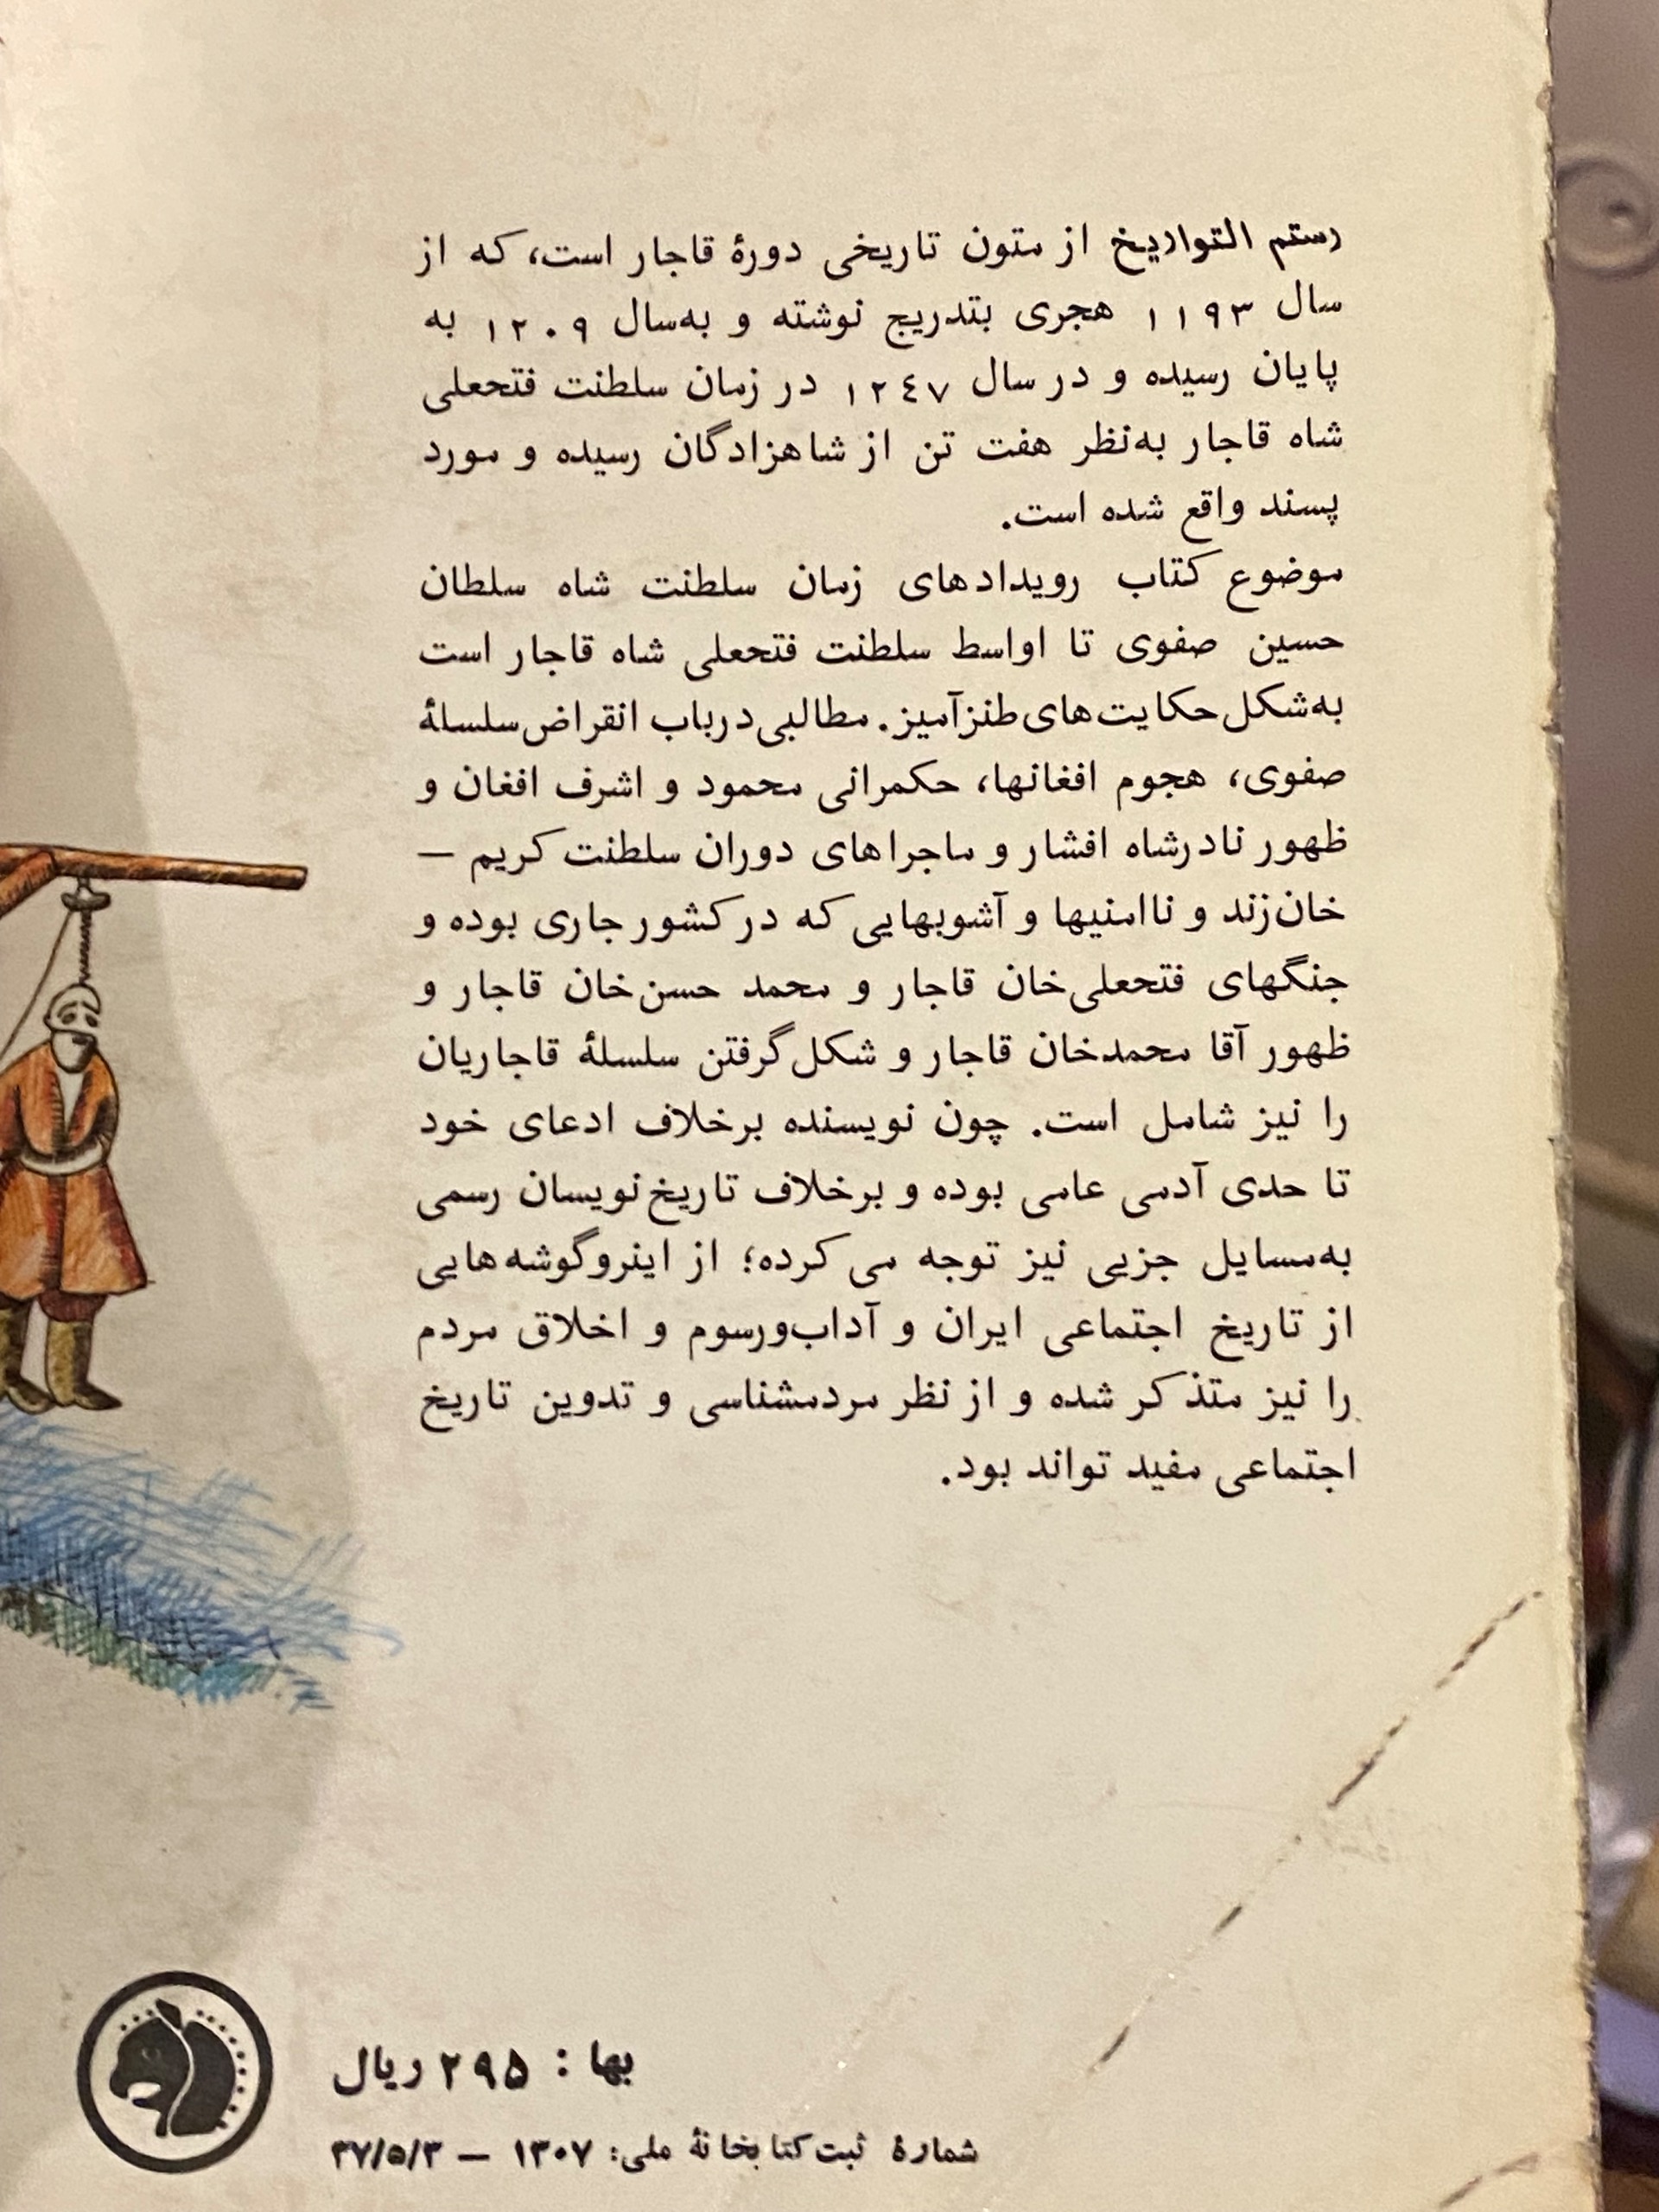 رستم التواریخ از متون تاریخی دورهٔ قاجار است، که از
سال ۱۱۹۳ هجری بتدریج نوشته و به‌سال ۱۲۰۹ به
پایان رسیده و در سال ۱۲٤۷ در زمان سلطنت فتحعلی
شاه قاجار به‌نظر هفت تن از شاهزادگان رسیده و مورد
پسند واقع شده است.
موضوع کتاب رویدادهای زمان سلطنت شاه سلطان
حسین صفوی تا اواسط سلطنت فتحعلی شاه قاجار است
به‌شکل حکایت‌های طنزآمیز. مطالبی درباب انقراض سلسلهٔ
صفوی، هجوم افغانها، حکمرانی محمود و اشرف افغان و
ظهور نادرشاه افشار و ماجراهای دوران سلطنت کریم –
خان‌زند و ناامنیها و آشوبهایی که در کشور جاری بوده و
جنگهای فتحعلی‌خان قاجار و محمد حسن‌خان قاجار و
ظهور آقا محمدخان قاجار و شکل‌گرفتن سلسلهٔ قاجاریان
را نیز شامل است. چون نویسنده برخلاف ادعای خود
تا حدی آدمی عامی بوده و برخلاف تاریخ‌نویسان رسمی
به‌مسایل جزیی نیز توجه می کرده؛ از اینروگوشه‌هایی
از تاریخ اجتماعی ایران و آداب‌ورسوم و اخلاق مردم
را نیز متذکر شده و از نظر مردمشناسی و تدوین تاریخ
اجتماعی مفید تواند بود.
بها : ۲۹۵ ریال
شمارهٔ ثبت کتابخانهٔ ملی: ۱۳۰۷ – ۳۷/۵/۳